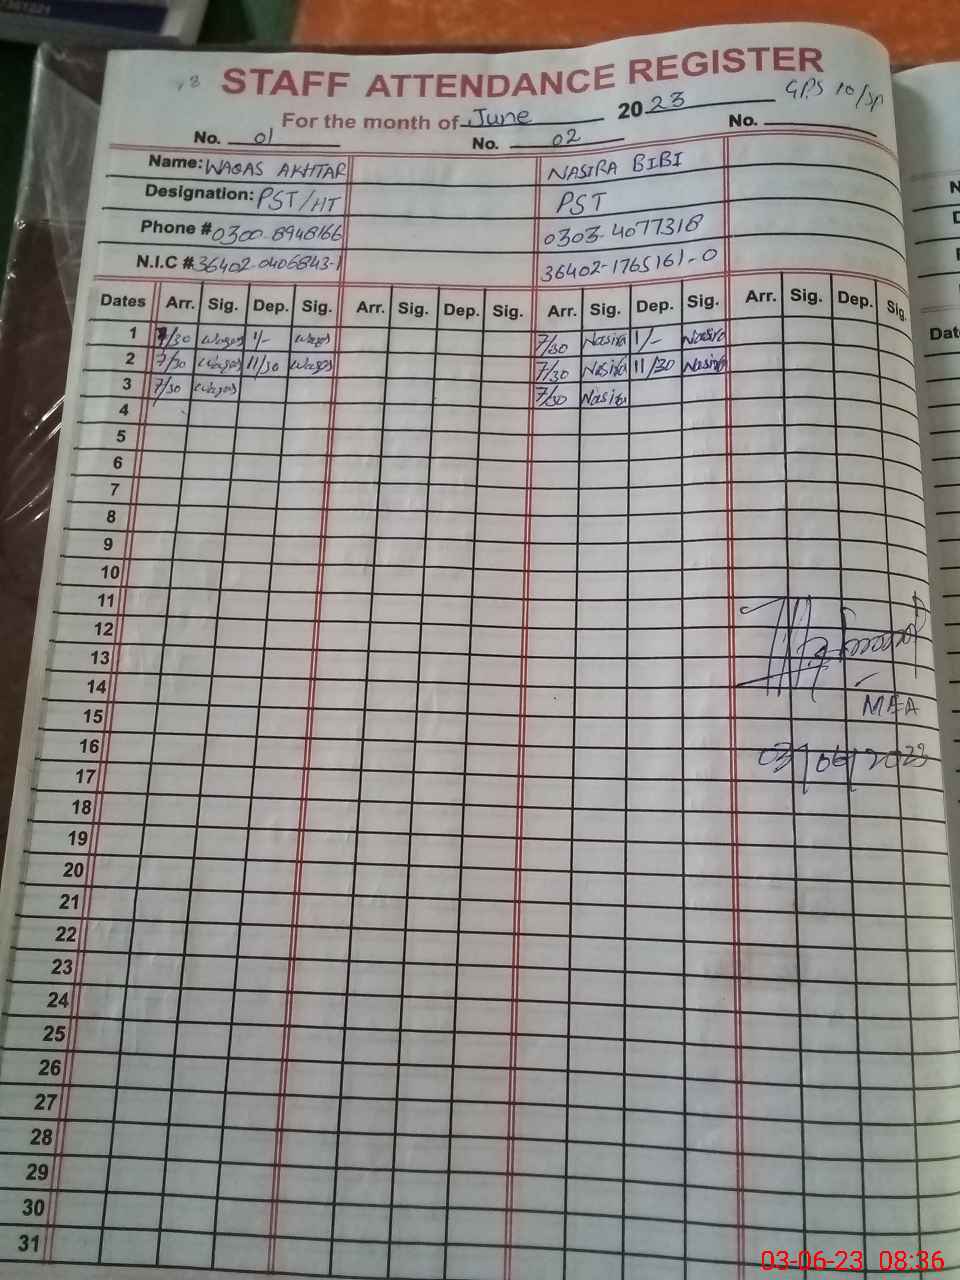 STAFF ATTENDANCE REGISTER
For the month of June 2023 GPS 10/SP
No. 01 No. 02 No.
Name: WAQAS AKHTAR NASIRA BIBI
Designation: PST/HT PST
Phone # 0300-8948166 0303-4077318
N.I.C # 36402-0406843-1 36402-1765161-0
Dates Arr. Sig. Dep. Sig. Arr. Sig. Dep. Sig. Arr. Sig. Dep. Sig. Arr. Sig. Dep. Sig.
1 7/30 Waqas 1/- Waqas 7/30 Nasira 1/- Nasira
2 7/30 Waqas 11/30 Waqas 7/30 Nasira 11/30 Nasira
3 7/30 Waqas 7/30 Nasira
4
5
6
7
8
9
10
11
12
13
14
15 MEA
16
17 03/06/2023
18
19
20
21
22
23
24
25
26
27
28
29
30
31
03-06-23 08:36